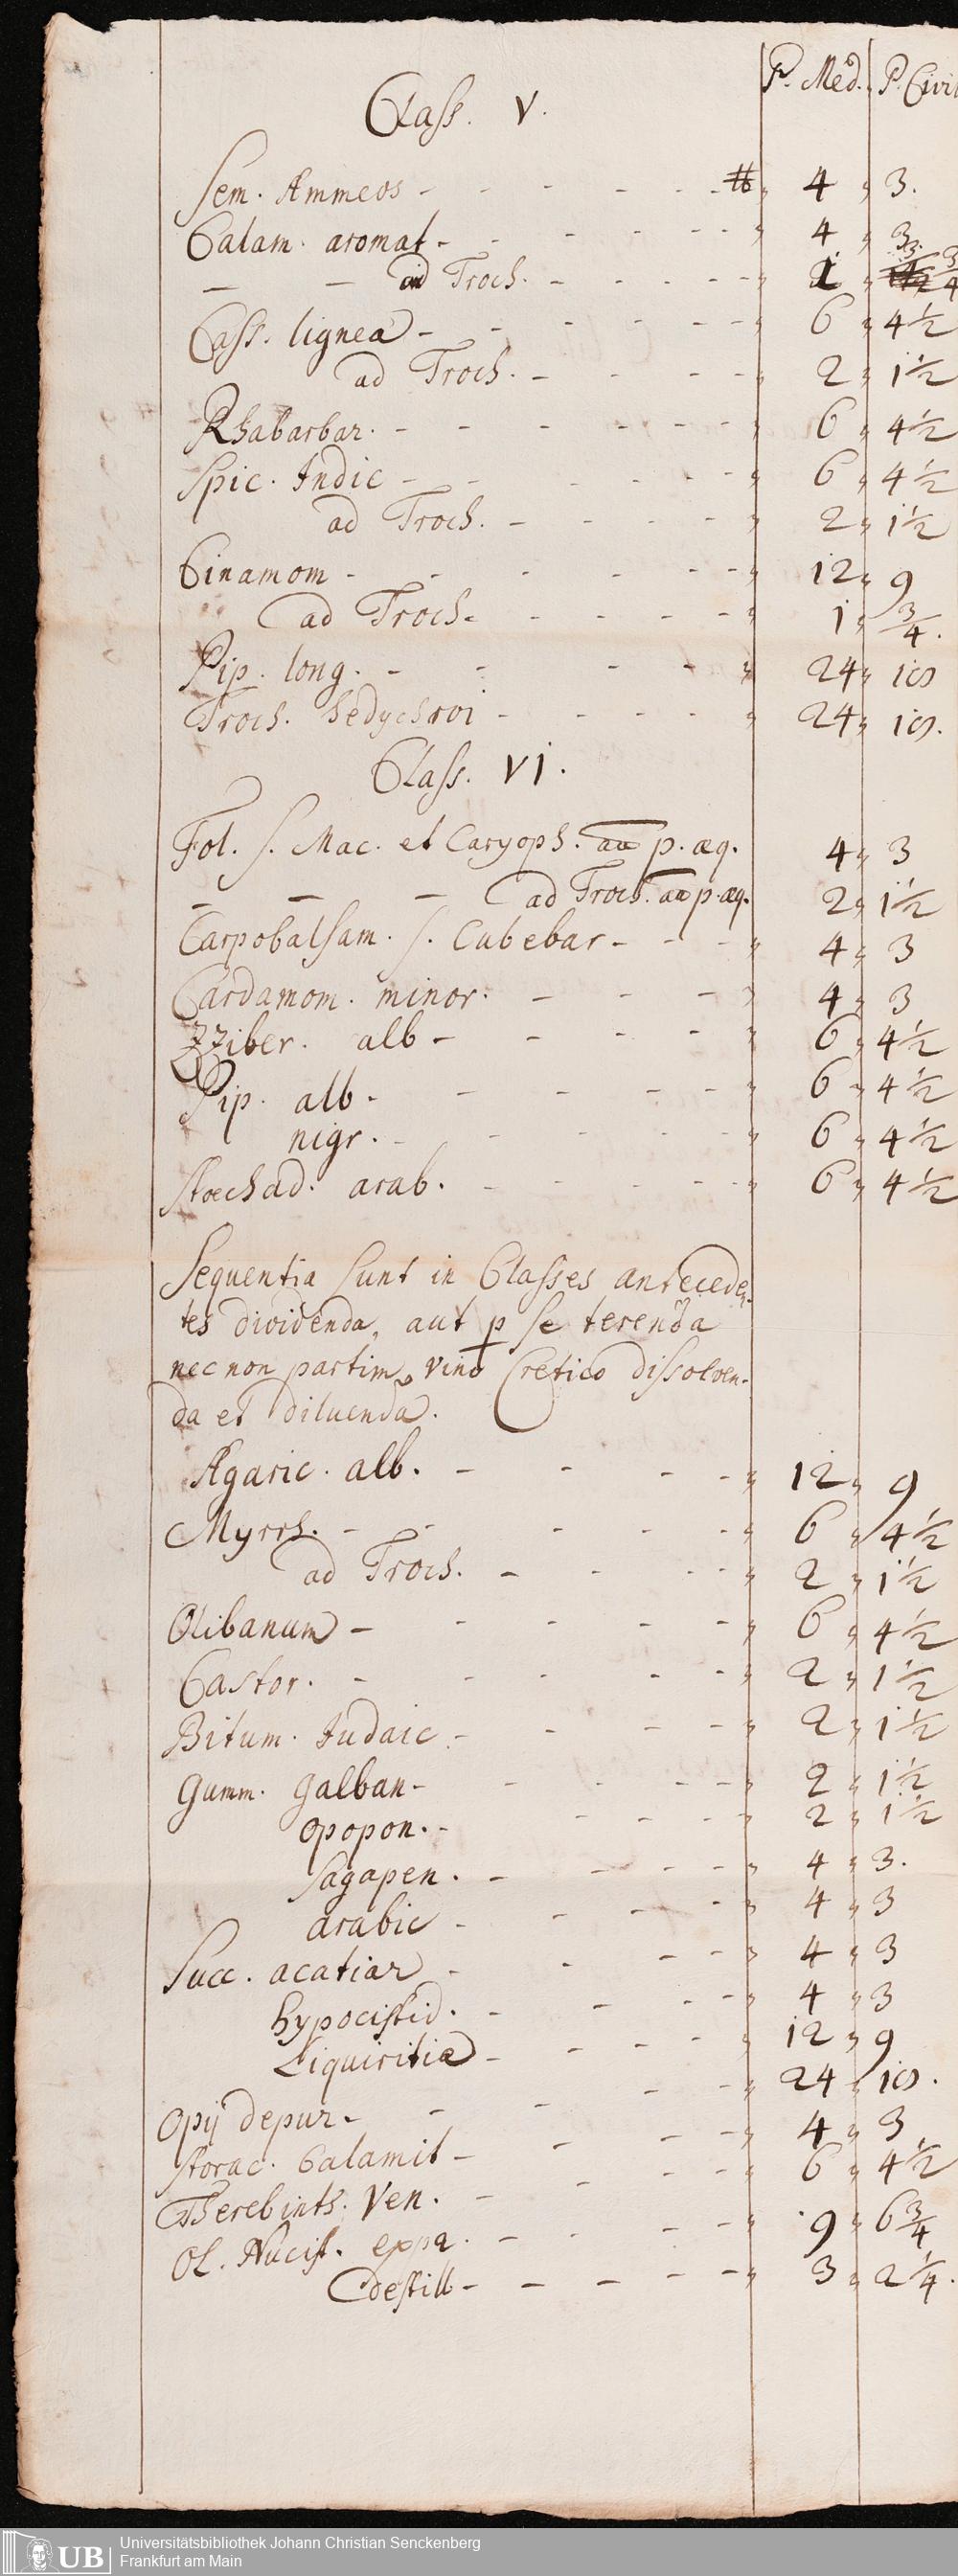 P. Med. P. Civil
Class. V.
Sem. Ammeos - - - - - - ℔ 4 „ 3.
Calam. aromat - - - - - - „ 4 „ 3.
— — ad Troch. - - - - - „ 1 „ 3/4
Cass. lignea - - - - - - „ 6 „ 4 1/2
ad Troch. - - - - „ 2 „ 1 1/2
Rhabarbar. - - - - - - „ 6 „ 4 1/2
Spic. Indic - - - - - „ 6 „ 4 1/2
ad Troch. - - - - - „ 2 „ 1 1/2
Cinamom - - - - - - „ 12 „ 9
ad Troch. - - - - „ 1 „ 3/4.
Pip. long. - - - - „ 24 „ 18
Troch. hedychroi - - - - „ 24 „ 18.
Class. VI.
Fol. s. Mac. et Caryoph. aa p. æq. 4 „ 3
— — — ad Troch. aa p. æq. 2 „ 1 1/2
Carpobalsam. s. Cubebar - - - „ 4 „ 3
Cardamom. minor. - - - „ 4 „ 3
Zziber. alb - - - - - „ 6 „ 4 1/2
Pip. alb. - - - - - „ 6 „ 4 1/2
nigr. - - - - - „ 6 „ 4 1/2
Stoechad. arab. - - - - - „ 6 „ 4 1/2
Sequentia sunt in Classes anteceden-
tes dividenda, aut p se terenda
nec non partim, vino Cretico dissolven-
da et diluenda.
Agaric. alb. - - - - „ 12 „ 9
Myrrh. - - - - - „ 6 „ 4 1/2
ad Troch. - - - - „ 2 „ 1 1/2
Olibanum - - - - - „ 6 „ 4 1/2
Castor. - - - - - „ 2 „ 1 1/2
Bitum. Judaic. - - - - „ 2 „ 1 1/2
Gumm. galban - - - - - „ 2 „ 1 1/2
opopon. - - - - - „ 2 „ 1 1/2
Sagapen. - - - - „ 4 „ 3.
arabic - - - - „ 4 „ 3
Succ. acatiar - - - - „ 4 „ 3
hypocistid. - - - - „ 4 „ 3
Liquiritiæ - - - - „ 12 „ 9
Opij depur. - - - - „ 24 „ 18.
Storac. Calamit - - - - „ 4 „ 3
Therebinth. Ven. - - - - „ 6 „ 4 1/2
Ol. Nucist. expr. - - - - „ 9 „ 6 3/4
destill - - - - - „ 3 „ 2 1/4.
UB
Universitätsbibliothek Johann Christian Senckenberg
Frankfurt am Main